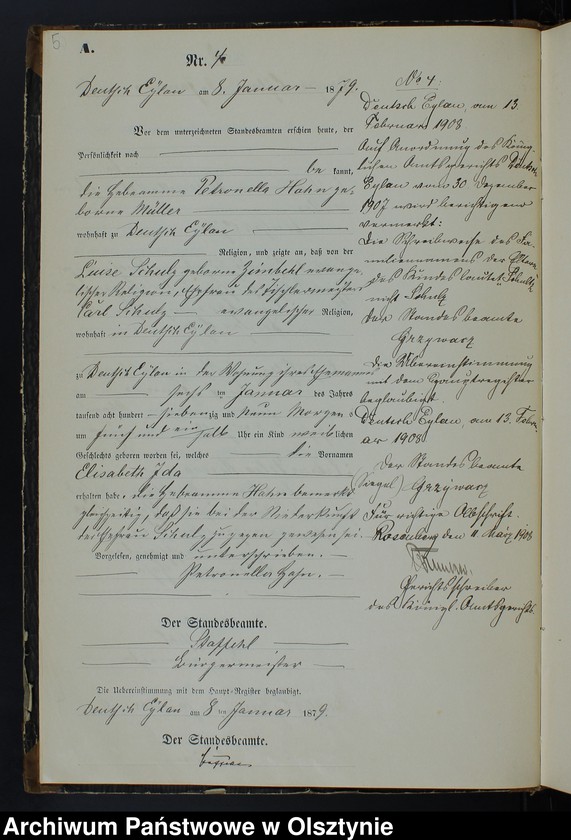 5
A.
Nr. 4
Deutsch Eylau am 8. Januar 1879.
Vor dem unterzeichneten Standesbeamten erschien heute, der
Persönlichkeit nach
be kannt,
die Hebeamme Petronella Hahn ge-
borne Müller
wohnhaft zu Deutsch Eylau
Religion, und zeigte an, daß von der
Luise Schulz geborne evange-
lischer Religion, Ehefrau des Tischlermeisters
Carl Schulz evangelischer Religion,
wohnhaft in Deutsch Eylau
zu Deutsch Eylau in der Wohnung ihres Ehemannes
am sechs ten Januar des Jahres
tausend acht hundert siebenzig und neun Morgens
um fünf und ein halb Uhr ein Kind weiblichen
Geschlechts geboren worden sei, welches die Vornamen
Elisabeth Ida
erhalten habe, die Hebeamme Hahn bemerkte
gleichzeitig, daß sie bei der Niederkunft
der Ehefrau Schulz zugegen gewesen sei.
Vorgelesen, genehmigt und unterschrieben.
Petronella Hahn.
Der Standesbeamte.
Staffehl
Bürgermeister
Die Uebereinstimmung mit dem Haupt-Register beglaubigt.
Deutsch Eylau am 8 ten Januar 1879.
Der Standesbeamte.
No 4.
Deutsch Eylau, am 13.
Februar 1908
Auf Anordnung des König-
lichen Amtsgerichts Deutsch
Eylau vom 30 Dezember
1907 wird berichtigend
vermerkt:
Die Schreibweise des Fa-
miliennamens der Eltern
des Kindes lautet „Schultz"
nicht Schulz
Der Standesbeamte
Grzywacz
Die Übereinstimmung
mit dem Hauptregister
beglaubigt.
Deutsch Eylau, am 13. Febru-
ar 1908
Der Standesbeamte
(Siegel) Grzywacz
Für richtige Abschrift.
Rosenberg den 11. März 1908
Gerichtsschreiber
des Königl. Amtsgerichts.
Archiwum Państwowe w Olsztynie